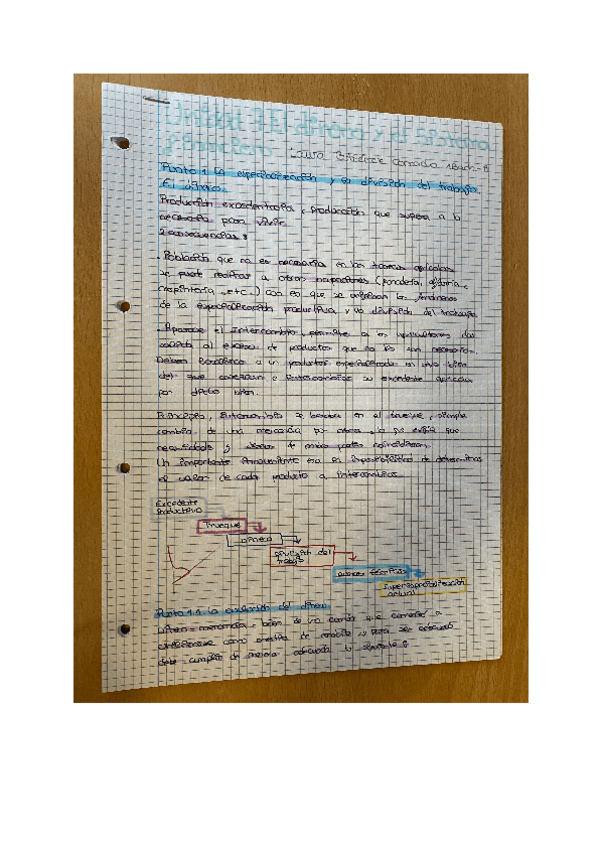 Unidad 7: El dinero y el sistema
financiero Laura 1Bach-B
Punto 1. La especialización y la división del trabajo.
El dinero.
Producción excedentaria, producción que supera a lo
necesario para vivir
2 consecuencias:
. Población que no es necesaria en las tareas agrícolas
se puede dedicar a otras (panadería,
carpintería, etc..) Con es que se originan los fenómenos
de la especialización productiva y la división del trabajo.
. Aparece el Intercambio, permite a los agricultores dar
salida al exceso de productos que no les son necesarios.
Deben a un productor especializado en otro bien
del que carezcan e intercambiar su excedente agrícola
por dicho bien.
Principio, Intercambio se basaba en el trueque, simple
cambio de una mercancía por otra, la que exigía que
necesidades y deseos de ambas partes coincidieran.
Un importante inconveniente era la imposibilidad de determinar
el valor de cada producto a intercambiar.
Excedente
Productivo
Trueque
dinero
división del
trabajo
Superespecialización
actual
Punto 1.1 La evolución del dinero
Dinero - mercancía, bien de uso común que comenzó a
utilizarse como medida de cambio, para ser
debe cumplir de manera adecuada lo siguiente: